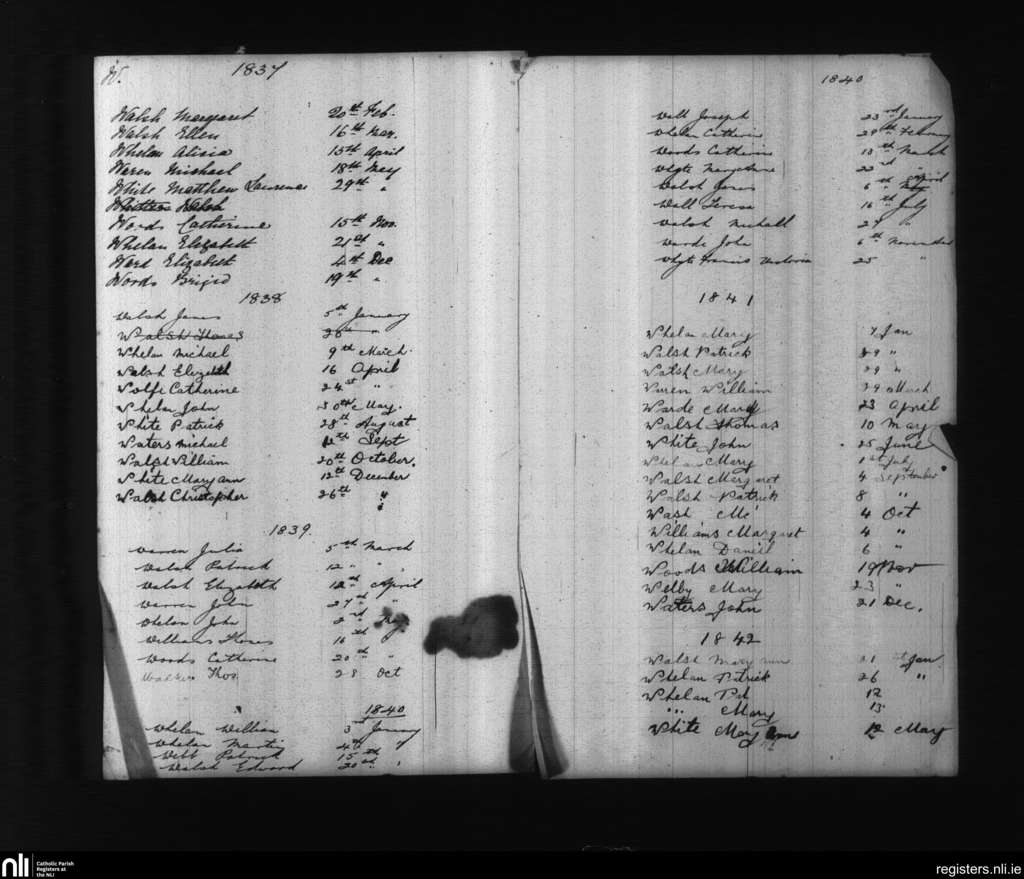 W. 1837
Walsh Margaret 20th Feb.
Walsh Ellen 16th Mar.
Whelan Alicia 15th April
Waren Michael 18th May
White Matthew Laurence 29th "
Walsh
Woods Catherine 15th Nov.
Whelan Elizabeth 21st "
Ward Elizabeth 4th Dec
Woods Brigid 19th "
1838
Walsh James 5th January
Walsh Thomas 28th "
Whelan Michael 9th March.
Walsh Elizabeth 16 April
Wolfe Catherine 24st "
Whelan John 30th May.
White Patrick 28th August
Waters Michael 12th Sept
Walsh William 20th October.
White Mary ann 12th December
Walsh Christopher 26th "
1839.
Warren Julia 5th March
Walsh Patrick 12 " "
Walsh Elizabeth 12th April
Warren John 27th "
Whelan John 2nd
Williams Thomas 16th
Woods Catherine 20th "
Walker Thos. 28 Oct
1840
Whelan William 3rd January
Whelan Martin 4th "
Webb Patrick 15th
Walsh Edward 20th "
1840
Wall Joseph 23rd January
Whelan Catherine 29th February
Woods Catherine 13th March
Whyte 22nd "
Walsh James 6th April
Wall Teresa 16th July
Walsh Michall 27 "
Warde John 6th November
Whyte Francis Victoria 25 "
1841
Whelan Mary 7 Jan
Walsh Patrick 29 "
Walsh Mary 29 "
Waren William 29 March
Warde Mary 23 April
Walsh Thomas 10 May
White John 25 June
Whelan Mary 1st July
Walsh Margaret 4 September
Walsh Patrick 8 "
Wash Mc' 4 Oct
Williams Margaret 4 "
Whelan Daniel 6 "
Woods William 19 Nov
Welby Mary 23 "
Waters John 21 Dec.
1842
Walsh Mary ann 21 Jan.
Whelan Patrick 26 "
Whelan Pat 12
" " Mary 13
White Mary Ann 12 May
nli Catholic Parish
Registers at
the NLI
registers.nli.ie